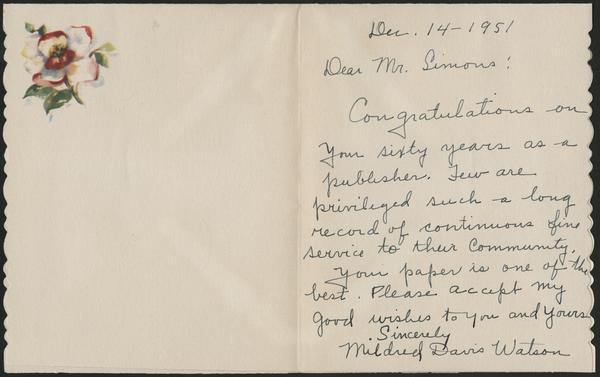 Dec. 14-1951
Dear Mr. Simons:
Congratulations on
Your sixty years as a
publisher. Few are
privileged such a long
record of continuous fine
service to their Community.
Your paper is one of the
best. Please accept my
good wishes to you and yours
Sincerely
Mildred Davis Watson